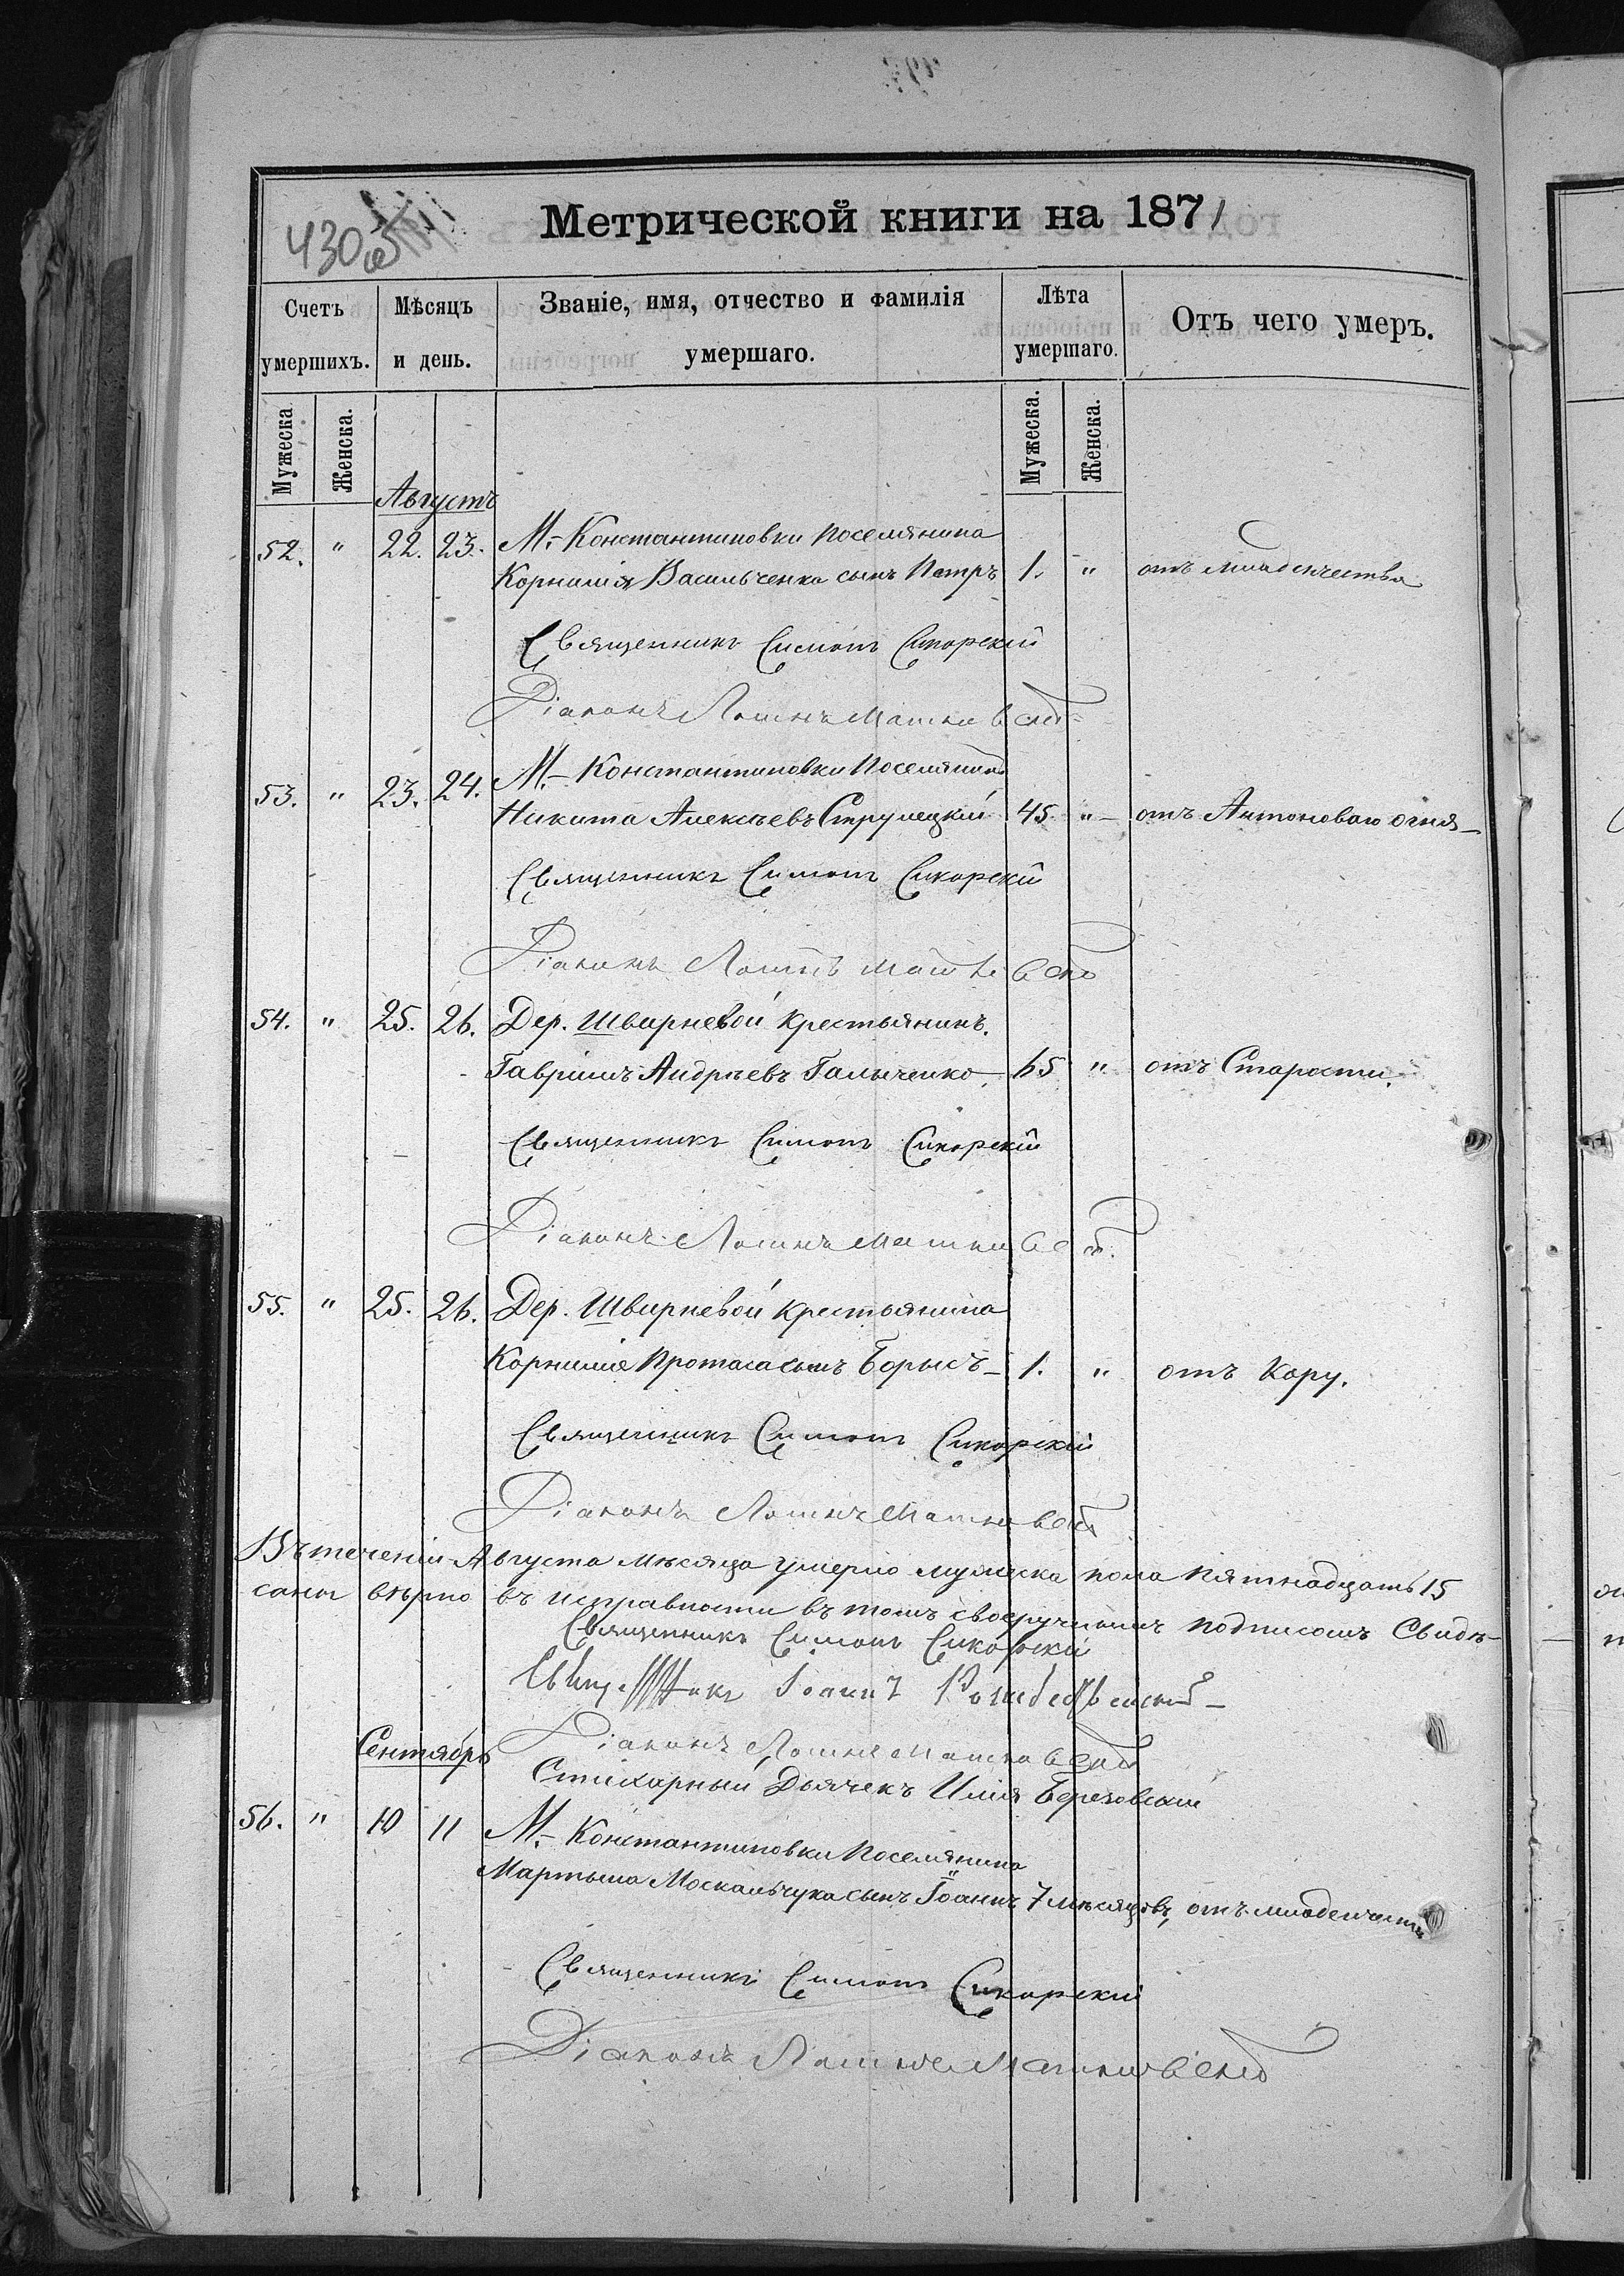 430 об
Метрической книги на 1871
Счетъ умершихъ.
Мѣсяцъ и день.
Званіе, имя, отчество и фамилія умершаго.
Лѣта умершаго.
Отъ чего умеръ.
Мужеска
Женска.
Мужеска.
Женска.
Августъ
52. " 22. 23. М. Константиновки поселянина
Корнилія Васильченка сынъ Петръ 1. " отъ младенчества
Священникъ Симонъ Сикорскій
Діаконъ
53. " 23. 24. М. Константиновки Поселянинъ
Никита Алексѣевъ Струлецкій 45 " отъ Антоноваго огня
Священникъ Симонъ Сикорскій
Діаконъ
54. " 25. 26. Дер. Швирневой крестьянинъ.
Гавріилъ Андрѣевъ Галыченко. 65 " отъ Старости.
Священникъ Симонъ Сикорскій
Діаконъ
55. " 25. 26. Дер. Швирневой крестьянина
Корнилія Протаса сынъ Борисъ 1. " отъ Кору.
Священникъ Симонъ Сикорскій
Діаконъ
Въ теченіи Августа мѣсяца умерло мужеска пола пятнадцать 15
саны вѣрно въ исправности въ томъ своеручнымъ подписомъ Свидѣ-
Священникъ Симонъ Сикорскій
Священникъ Іоаннъ
Сентябрь
Діаконъ
Стихарный Дьячекъ Илія Березовскій
56. " 10 11 М. Константиновки Поселянина
Мартына Москальчука сынъ Іоаннъ 7 мѣсяцовъ, отъ младенчества
Священникъ Симонъ Сикорскій
Діаконъ